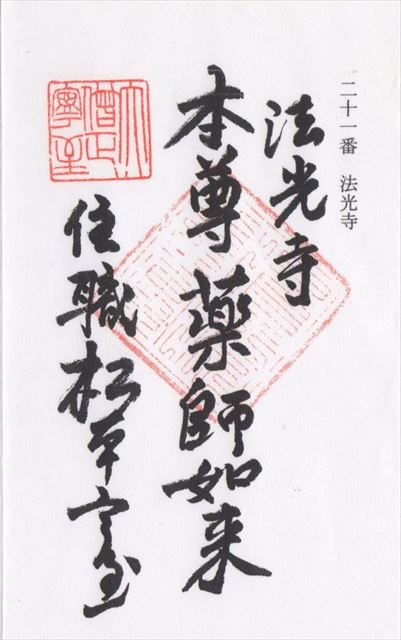 二十一番 法光寺
法光寺
本尊 薬師如来
住職 松平